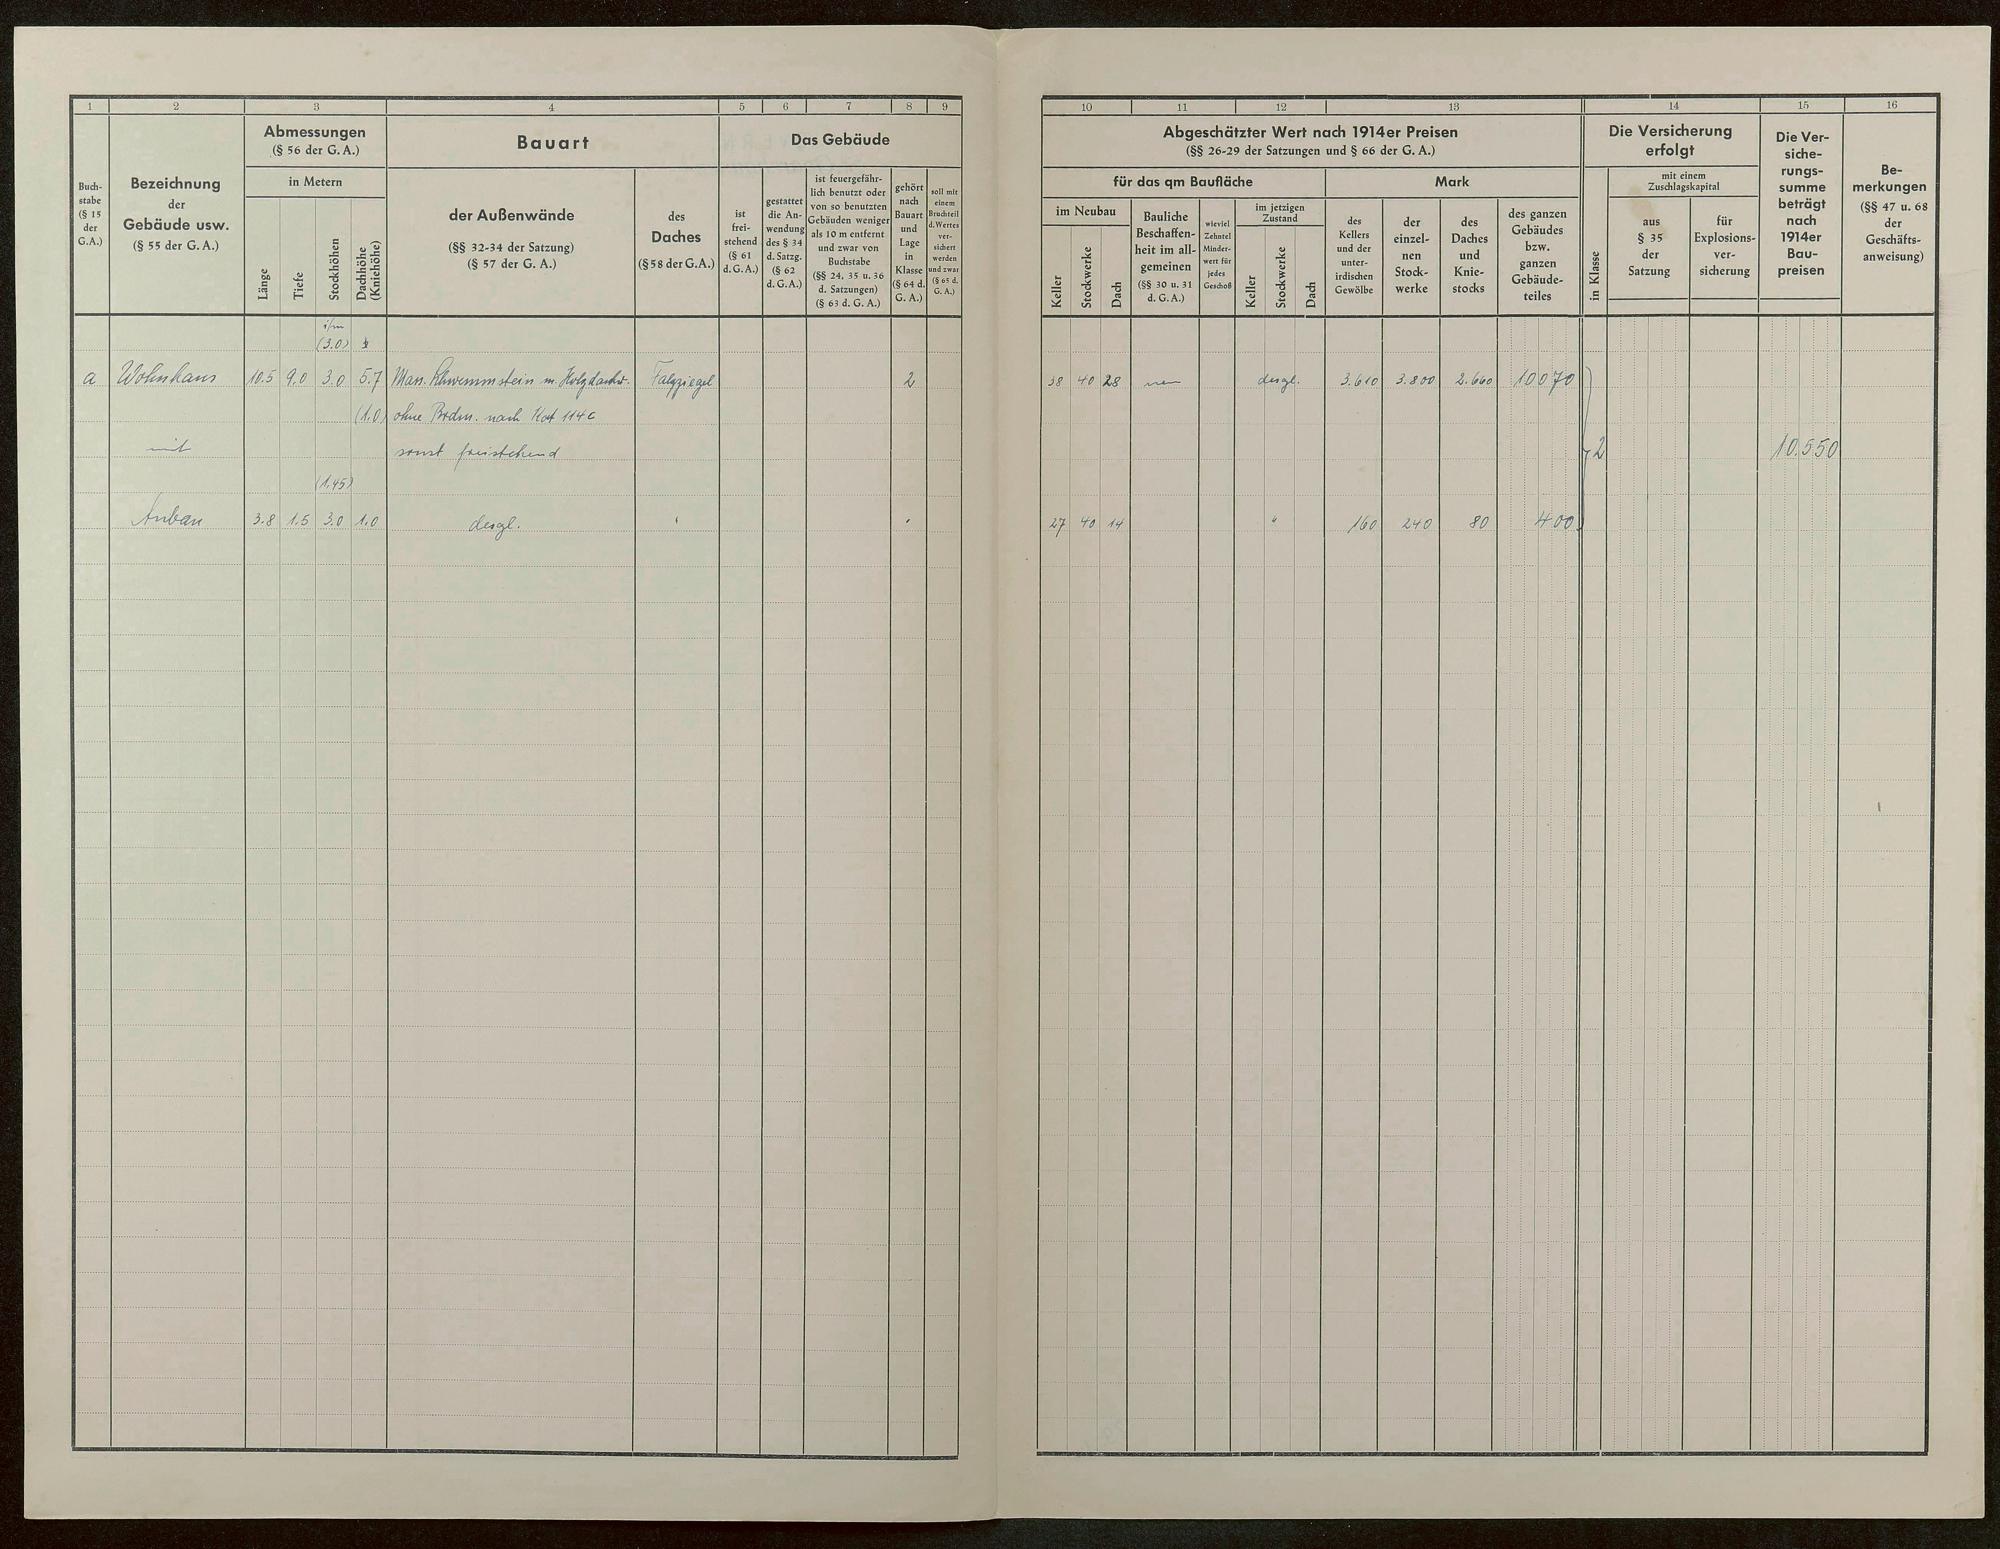 1 2 3 4 5 6 7 8 9
Buch-
stabe
(§ 15
der
G.A.)
Bezeichnung
der
Gebäude usw.
(§ 55 der G. A.)
Abmessungen
(§ 56 der G. A.)
in Metern
Länge
Tiefe
Stockhöhen
Dachhöhe
(Kniehöhe)
Bauart
der Außenwände
(§§ 32-34 der Satzung)
(§ 57 der G. A.)
des
Daches
(§ 58 der G. A.)
Das Gebäude
ist
frei-
stehend
(§ 61
d. G. A.)
gestattet
die An-
wendung
des § 34
d. Satzg.
(§ 62
d. G. A.)
ist feuergefähr-
lich benutzt oder
von so benutzten
Gebäuden weniger
als 10 m entfernt
und zwar von
Buchstabe
(§§ 24, 35 u. 36
d. Satzungen)
(§ 63 d. G. A.)
gehört
nach
Bauart
und
Lage
in
Klasse
(§ 64 d.
G. A.)
soll mit
einem
Bruchteil
d. Wertes
ver-
sichert
werden
und zwar
(§ 65 d.
G. A.)
(3.0)
a Wohnhaus 10.5 9.0 3.0 5.7 Mass. Schwemmstein m. Falzziegel 2
(1.0) ohne Brdm. nach 114c
mit sonst freistehend
(1.45)
Anbau 3.8 1.5 3.0 1.0 desgl. " "
10 11 12 13 14 15 16
Abgeschätzter Wert nach 1914er Preisen
(§§ 26-29 der Satzungen und § 66 der G. A.)
für das qm Baufläche
im Neubau
Keller
Stockwerke
Dach
Bauliche
Beschaffen-
heit im all-
gemeinen
(§§ 30 u. 31
d. G. A.)
wieviel
Zehntel
Minder-
wert für
jedes
Geschoß
im jetzigen
Zustand
Keller
Stockwerke
Dach
Mark
des
Kellers
und der
unter-
irdischen
Gewölbe
der
einzel-
nen
Stock-
werke
des
Daches
und
Knie-
stocks
des ganzen
Gebäudes
bzw.
ganzen
Gebäude-
teiles
Die Versicherung
erfolgt
in Klasse
mit einem
Zuschlagskapital
aus
§ 35
der
Satzung
für
Explosions-
ver-
sicherung
Die Ver-
siche-
rungs-
summe
beträgt
nach
1914er
Bau-
preisen
Be-
merkungen
(§§ 47 u. 68
der
Geschäfts-
anweisung)
38 40 28 neu desgl. 3.610 3.800 2.660 10070
2 10.550
27 40 14 " 160 240 80 400